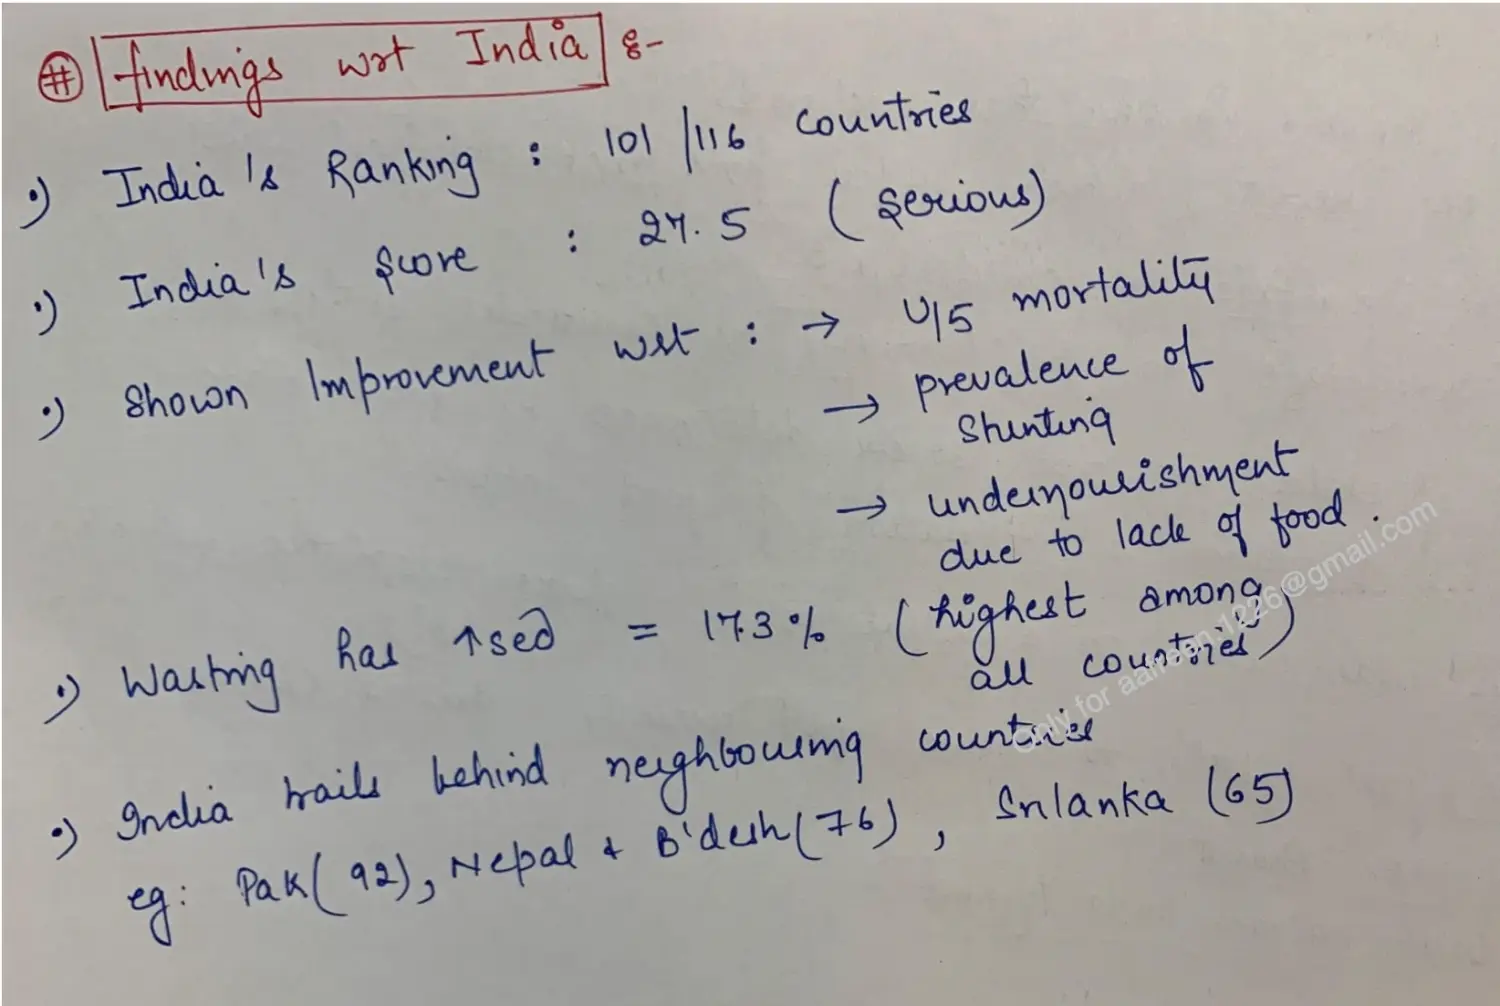 # findings wrt India :-
•) India's Ranking : 101/116 countries
•) India's Score : 27.5 (Serious)
•) Shown Improvement wrt : → U/5 mortality
→ prevalence of
Stunting
→ undernourishment
due to lack of food.
•) Wasting has ↑sed = 17.3% (highest among
all countries)
•) India trails behind neighbouring countries
eg: Pak(92), Nepal & B'desh(76), Srilanka (65)